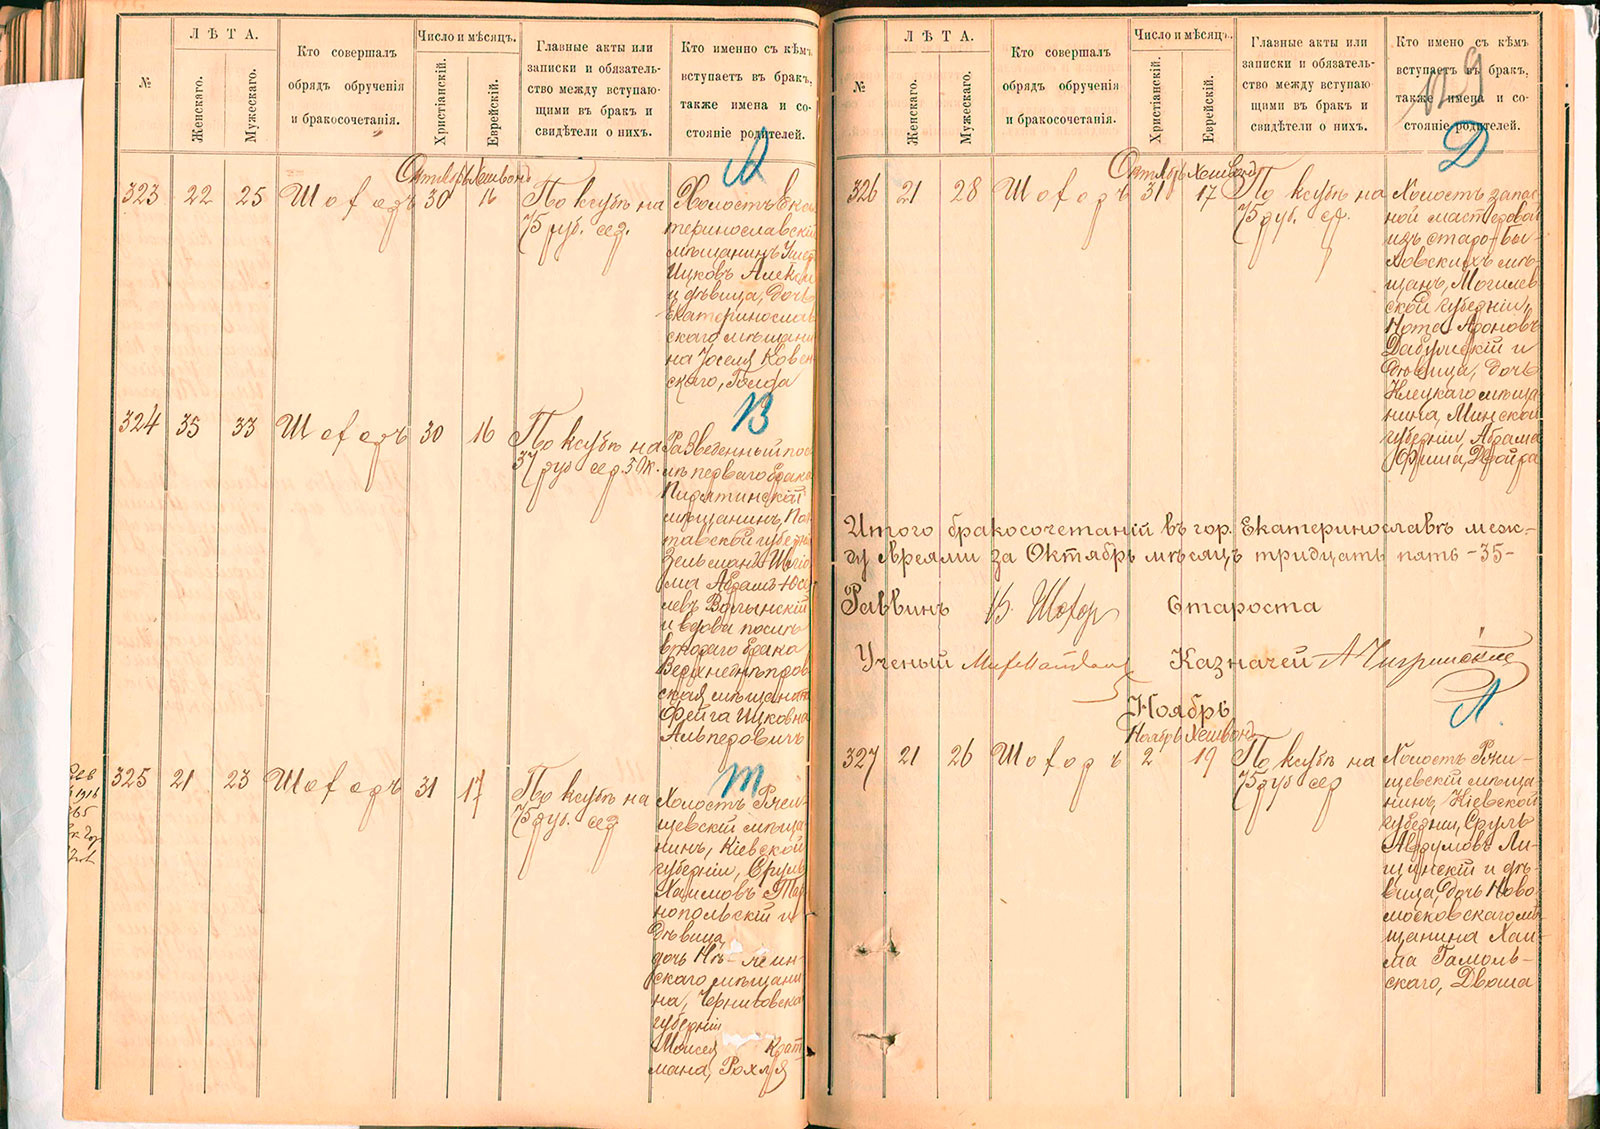 №
ЛѢТА.
Женскаго.
Мужескаго.
Кто совершалъ
обрядъ обрученія
и бракосочетанія.
Число и мѣсяцъ.
Христіанскій.
Еврейскій.
Главные акты или
записки и обязатель-
ство между вступаю-
щими въ бракъ и
свидѣтели о нихъ.
Кто именно съ кѣмъ
вступаетъ въ бракъ,
также имена и со-
стояніе родителей.
А
Октябрь Хешвонъ
323 22 25 Шофоръ 30 16 По ксубѣ на
75 руб. сер.
Холостъ Ека-
теринославскій
мѣщанинъ
Ицковъ
и дѣвица, дочь
Екатеринослав-
скаго мѣщани-
на Іоселя Ковен-
скаго, Голда
В
324 35 33 Шофоръ 30 16 По ксубѣ на
37 руб сер.
Разведенный пос-
лѣ перваго брака
Пирятинскій
мѣщанинъ, Пол-
тавской губерніи
Зельманъ
Абрамъ
Волынскій
и вдова послѣ
втораго брака
Верхнеднѣпров-
ская мѣщанка
Фейга Ицковна
Альперовичъ
Т
325 21 23 Шофоръ 31 17 По ксубѣ на
75 руб. сер
Холостъ Ржи-
щевскій мѣща-
нинъ, Кіевской
губерніи, Сруль
Хаимовъ Тар-
нопольскій и
дѣвица,
дочь
скаго мѣщани-
на, Черниговской
губерніи
Моисея
мана, Рохля
№
ЛѢТА.
Женскаго.
Мужескаго.
Кто совершалъ
обрядъ обрученія
и бракосочетанія.
Число и мѣсяцъ.
Христіанскій.
Еврейскій.
Главные акты или
записки и обязатель-
ство между вступаю-
щими въ бракъ и
свидѣтели о нихъ.
Кто имено съ кѣмъ
вступаетъ въ бракъ,
также имена и со-
стояніе родителей.
129
Д
Октябрь Хешвонъ
326 21 28 Шофоръ 31 17 По ксубѣ на
75 руб. сер.
Холостъ запас-
ной мастеровой
изъ старо-бы-
ховскихъ мѣ-
щанъ, Могилев-
ской губерніи,
Нота Ароновъ
и
дѣвица, дочь
Клецкаго мѣща-
нина, Минской
губерніи, Абрама
Фиша, Двойра
Итого бракосочетаній въ гор. Екатеринославѣ меж-
ду евреями за Октябрь мѣсяцъ тридцать пять -35-
Раввинъ В. Шофор Староста
Ученый Казначей
Ноябрь
Л.
Ноябрь Хешвонъ
327 21 26 Шофоръ 2 19 По ксубѣ на
75 руб сер
Холостъ Ржи-
щевскій мѣща-
нинъ, Кіевской
губерніи, Сруль
Аврумовъ Ли-
щинскій и дѣ-
вица, дочь Ново-
московскаго мѣ-
щанина Хаи-
ма Гамоль-
скаго, Двоша